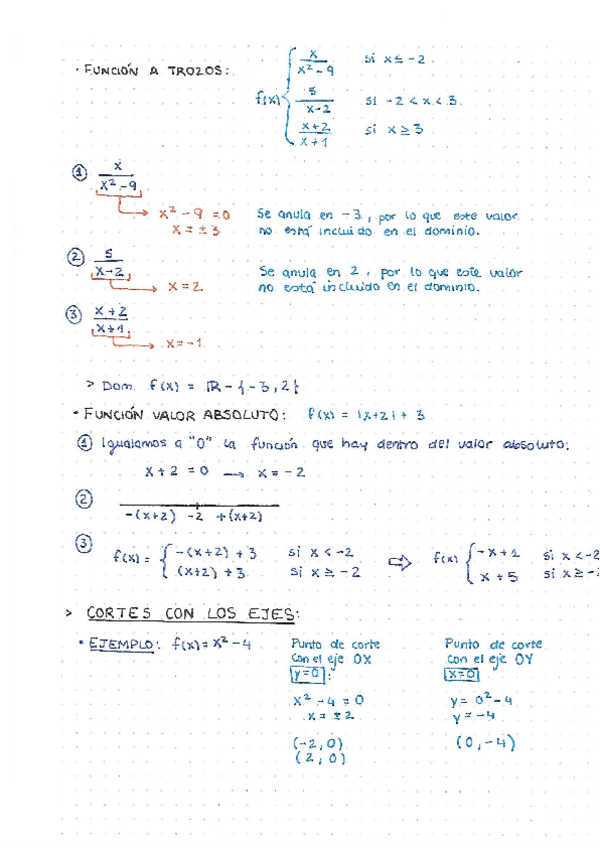 · FUNCIÓN A TROZOS: f(x) { x / x² - 9 si x ≤ -2
5 / x - 2 si -2 < x < 3
x + 2 / x + 1 si x ≥ 3
① x / x² - 9
→ x² - 9 = 0 Se anula en -3, por lo que este valor
x = ± 3 no está incluido en el dominio.
② 5 / x - 2 Se anula en 2, por lo que este valor
→ x = 2 no está incluido en el dominio.
③ x + 2 / x + 1
→ x = -1
> Dom f(x) = ℝ - {-3, 2}
· FUNCIÓN VALOR ABSOLUTO: f(x) = |x+2| + 3
① Igualamos a "0" la función que hay dentro del valor absoluto:
x + 2 = 0 → x = -2
②
-(x+2) -2 +(x+2)
③ f(x) = { -(x+2) + 3 si x < -2 ⇨ f(x) { -x + 1 si x < -2
(x+2) + 3 si x ≥ -2 x + 5 si x ≥ -
> CORTES CON LOS EJES:
· EJEMPLO: f(x) = x² - 4 Punto de corte Punto de corte
con el eje OX con el eje OY
y=0 : x=0
x² - 4 = 0 y = 0² - 4
x = ± 2 y = -4
(-2, 0) (0, -4)
(2, 0)